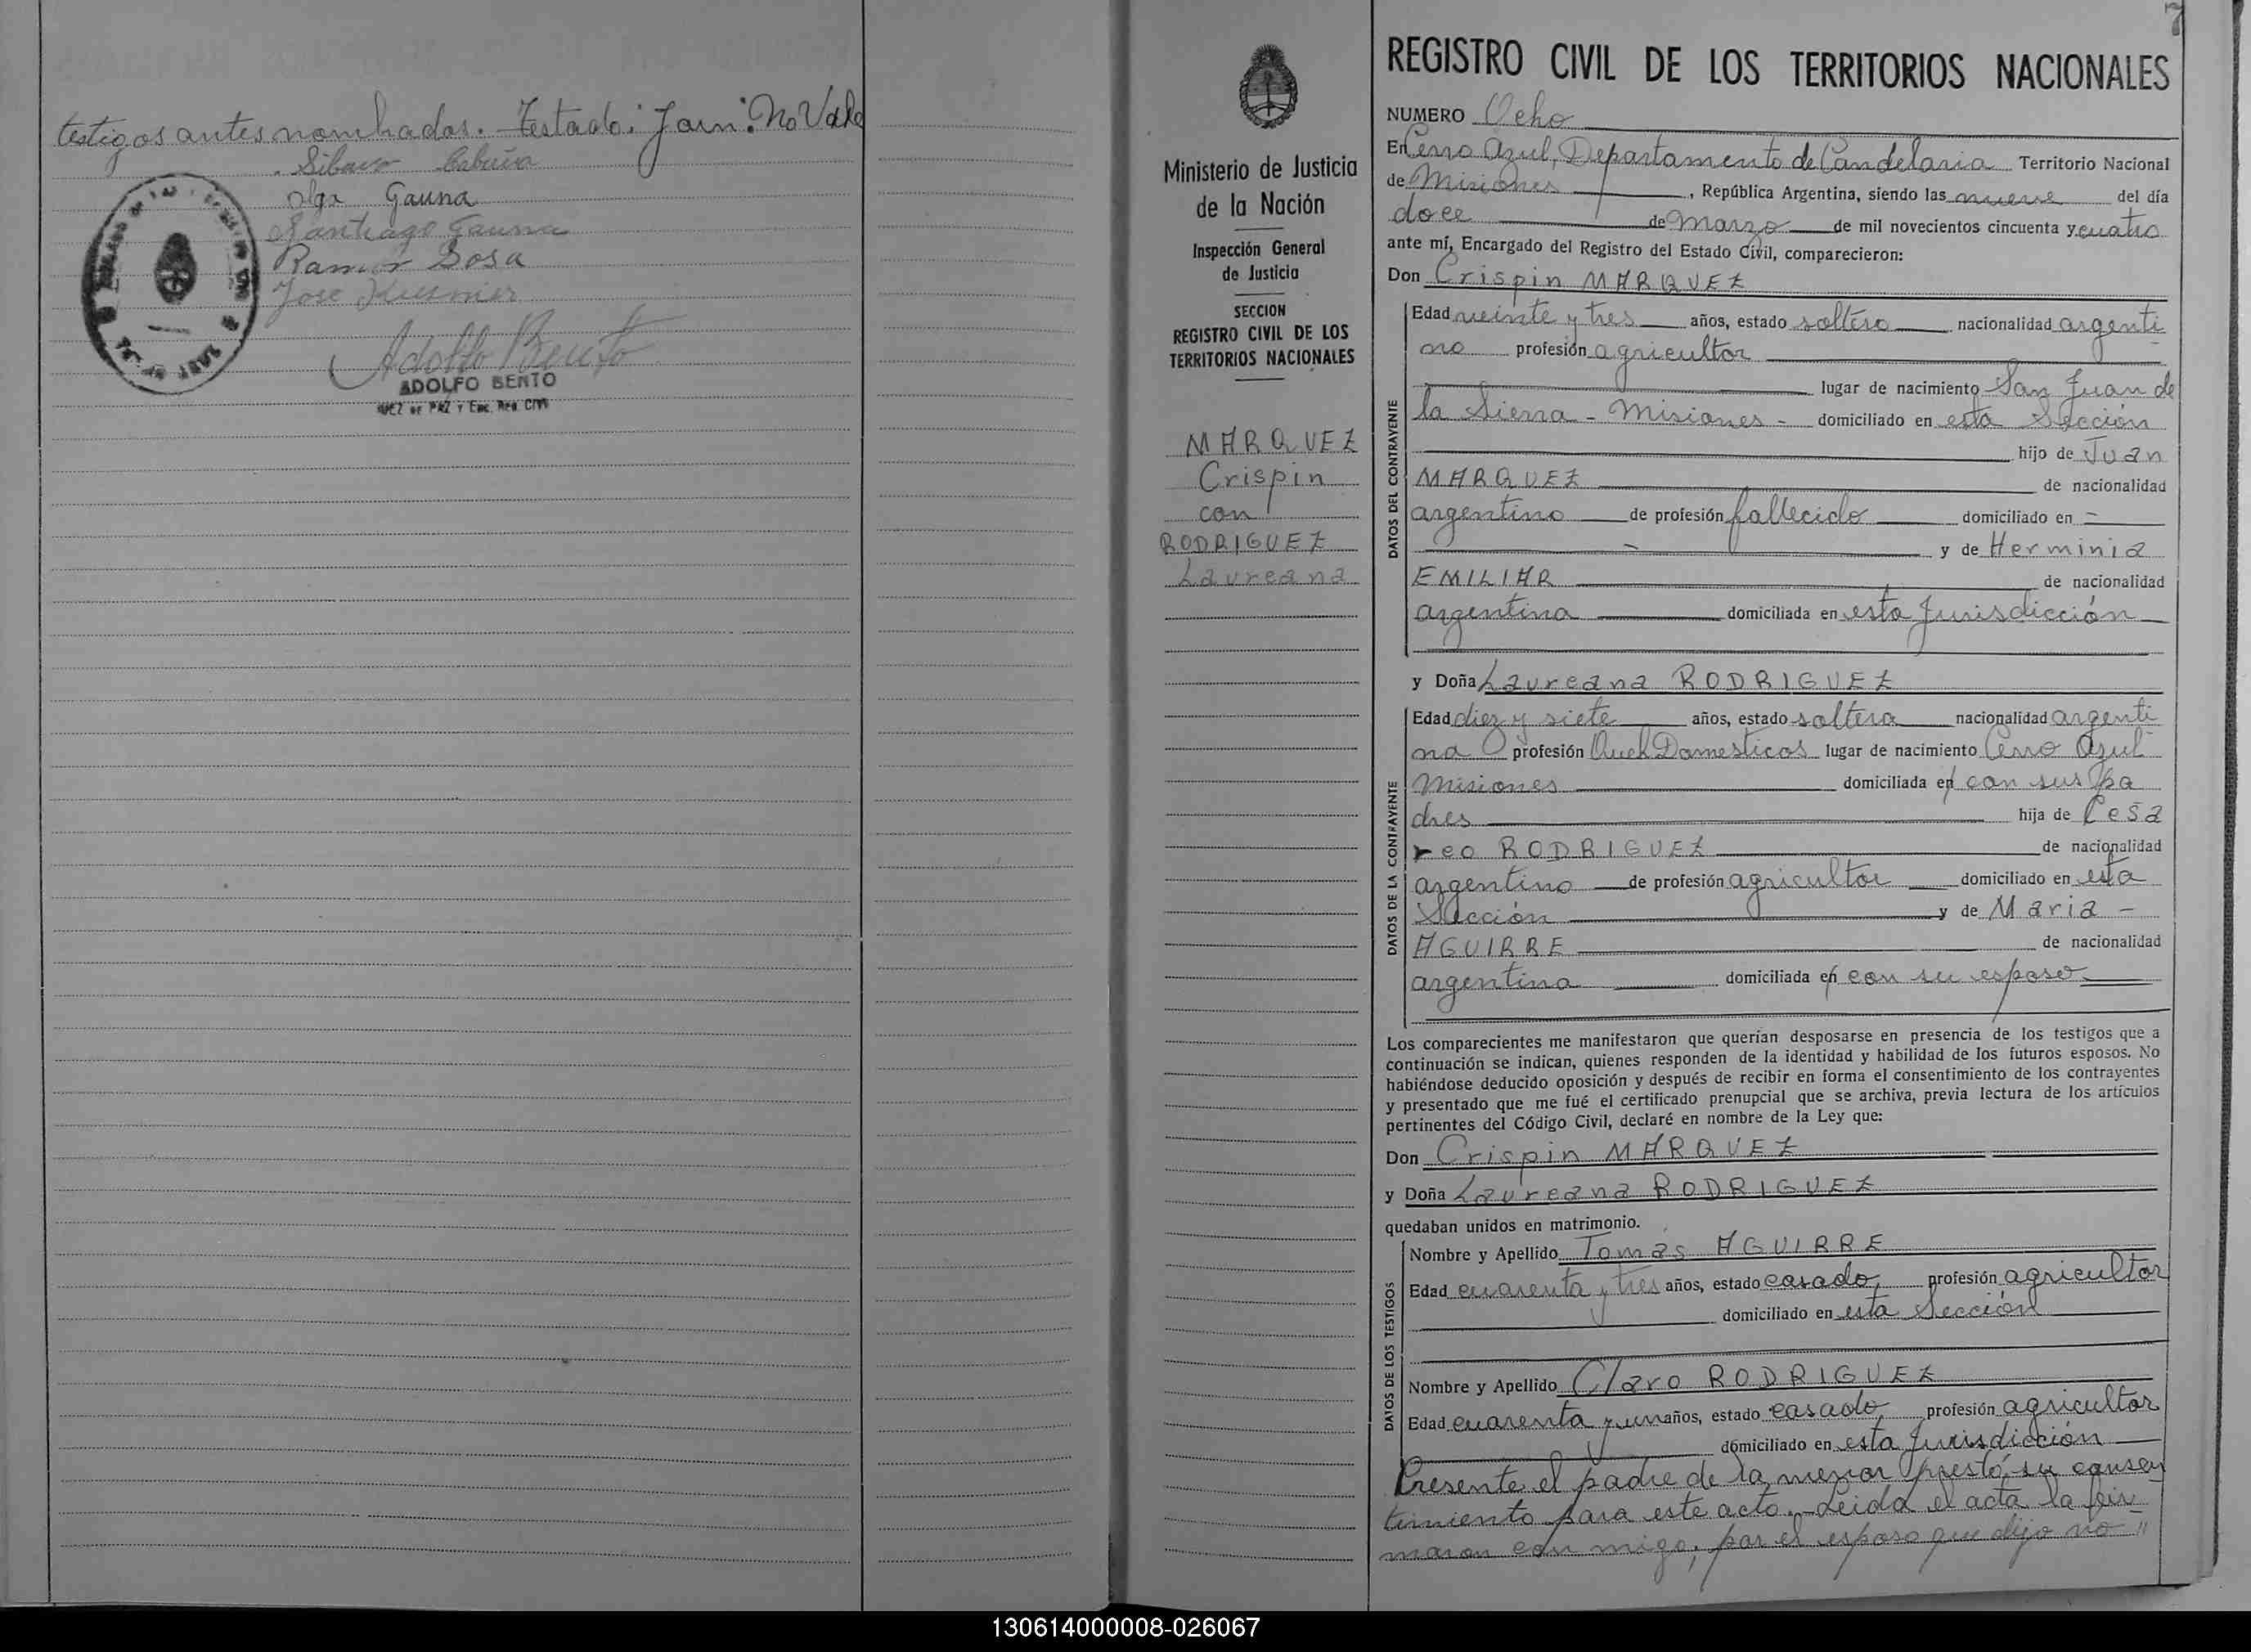 testigos antes nombrados. Testado: Jorn: No Vale
Olga Gauna
Santiago Gauna
Ramón Sosa
Jose
Adolfo Bento
ADOLFO BENTO
JUEZ DE PAZ Y Enc. Reg. CIVIL
7
Ministerio de Justicia
de la Nación
Inspección General
de Justicia
SECCION
REGISTRO CIVIL DE LOS
TERRITORIOS NACIONALES
MARQUEZ
Crispin
con
RODRIGUEZ
Laureana
REGISTRO CIVIL DE LOS TERRITORIOS NACIONALES
NUMERO Ocho
En Cerro Azul, Departamento de Candelaria Territorio Nacional
de Misiones, República Argentina, siendo las nueve del día
doce de Marzo de mil novecientos cincuenta y cuatro
ante mí, Encargado del Registro del Estado Civil, comparecieron:
Don Crispin MARQUEZ
DATOS DEL CONTRAYENTE
Edad veinte y tres años, estado soltero nacionalidad argenti
no profesión agricultor
lugar de nacimiento San Juan de
la Sierra - Misiones - domiciliado en esta Sección
hijo de Juan
MARQUEZ de nacionalidad
argentino de profesión fallecido domiciliado en -
- y de Herminia
EMILIAR de nacionalidad
argentina domiciliada en esta Jurisdicción
y Doña Laureana RODRIGUEZ
DATOS DE LA CONTRAYENTE
Edad diez y siete años, estado soltera nacionalidad argenti
na profesión Queh Domesticos lugar de nacimiento Cerro Azul
Misiones domiciliada en con sus pa
dres hija de Cesa
reo RODRIGUEZ de nacionalidad
argentino de profesión agricultor domiciliado en esta
Sección y de Maria -
AGUIRRE de nacionalidad
argentina domiciliada en con su esposo
Los comparecientes me manifestaron que querían desposarse en presencia de los testigos que a
continuación se indican, quienes responden de la identidad y habilidad de los futuros esposos. No
habiéndose deducido oposición y después de recibir en forma el consentimiento de los contrayentes
y presentado que me fué el certificado prenupcial que se archiva, previa lectura de los artículos
pertinentes del Código Civil, declaré en nombre de la Ley que:
Don Crispin MARQUEZ
y Doña Laureana RODRIGUEZ
quedaban unidos en matrimonio.
DATOS DE LOS TESTIGOS
Nombre y Apellido Tomas AGUIRRE
Edad cuarenta y tres años, estado casado profesión agricultor
domiciliado en esta Sección
Nombre y Apellido Claro RODRIGUEZ
Edad cuarenta y un años, estado casado profesión agricultor
domiciliado en esta Jurisdicción
Presente el padre de la menor prestó su consen
timiento para este acto.- Leida el acta la fir
maron con migo, por el esposo que dijo no "
130614000008-026067